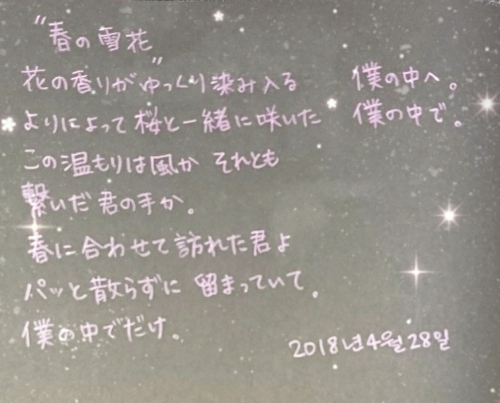 "春の雪花"
花の香りがゆっくり染み入る 僕の中へ。
よりによって桜と一緒に咲いた 僕の中で。
この温もりは風か それとも
繋いだ君の手か。
春に合わせて訪れた君よ
パッと散らずに 留まっていて。
僕の中でだけ。
2018년4월28일